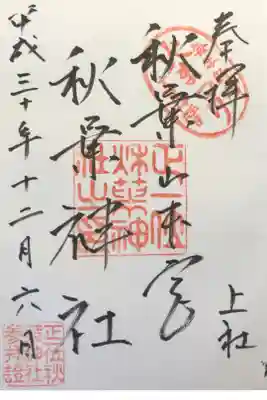 奉拝
上社
秋葉山本宮
秋葉神社
平成三十年十二月六日